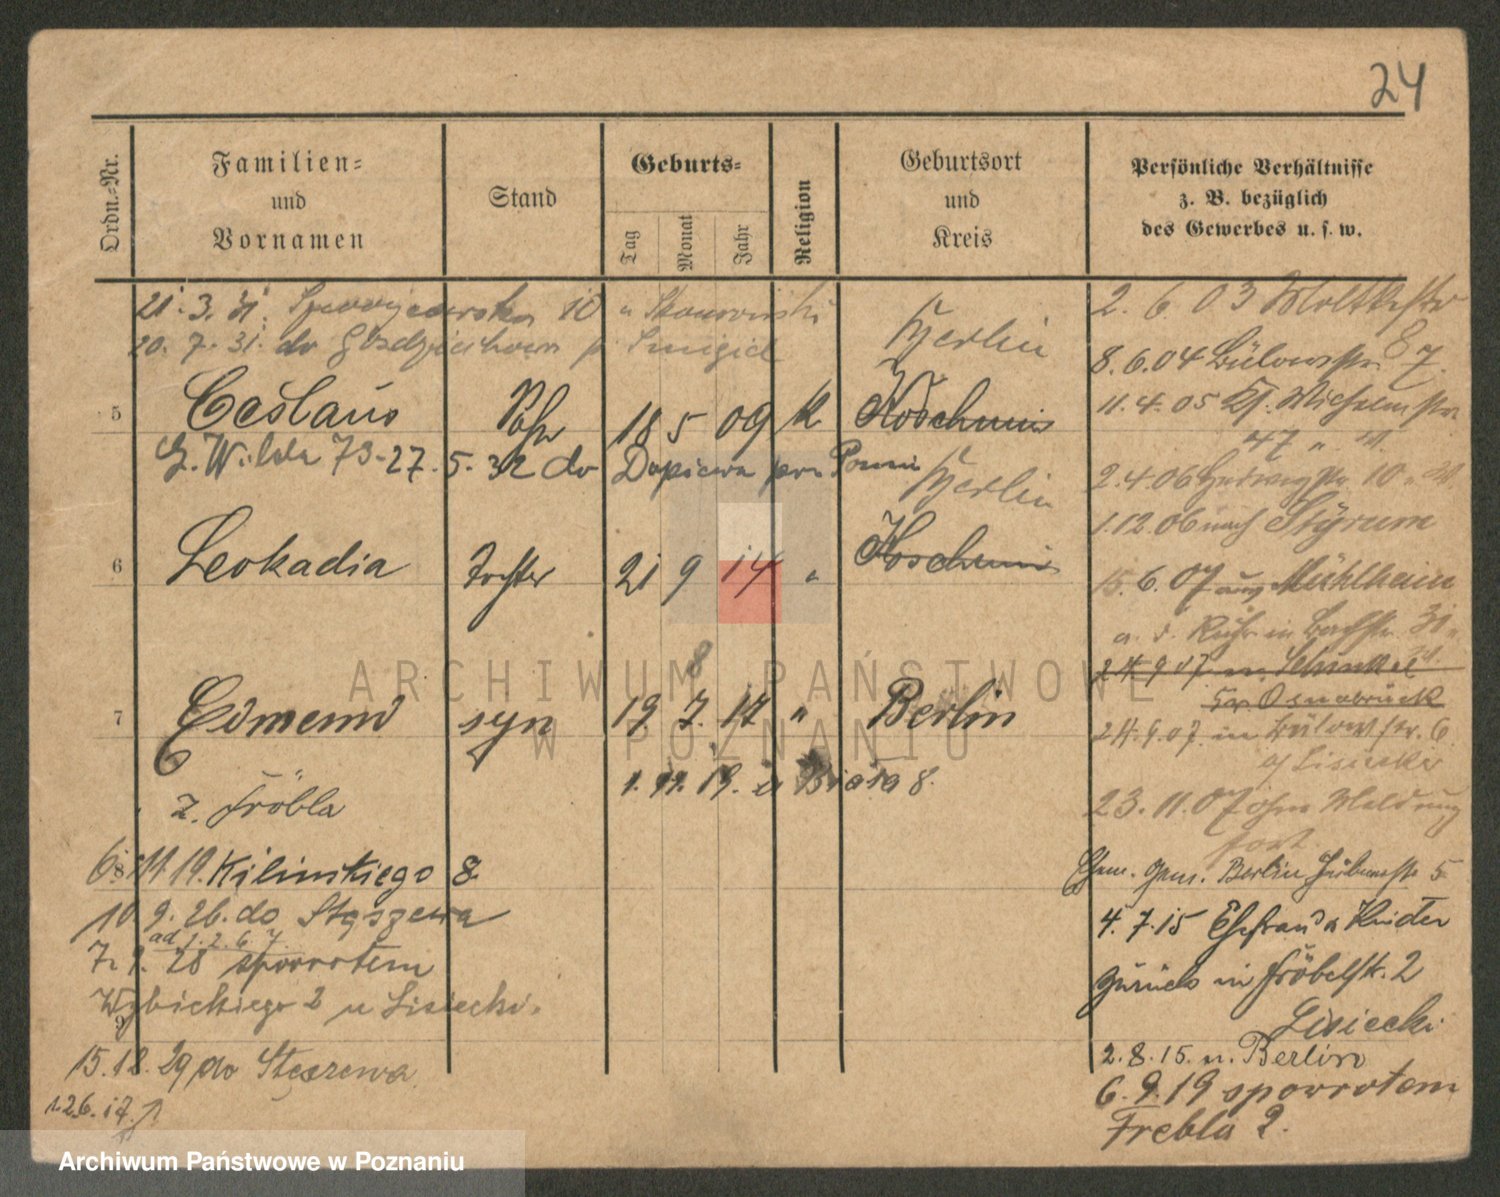 24
Ordn.-Nr.
Familien-
und
Vornamen
Stand
Geburts-
Tag
Monat
Jahr
Religion
Geburtsort
und
Kreis
Persönliche Verhältnisse
z. B. bezüglich
des Gewerbes u. s. w.
21. 3. 31. 10 u
20. 7. 31. do p Smigiel
Berlin
5 Ceslaus 18 5 09 k
G. Wilda 73 - 27. 5. 32 do Dopiewa
Berlin
6 Leokadia Tochter 21 9 14 "
8
7 Edmund syn 19 7. 17 " Berlin
1. 11. 19. Biała 8.
z. Fröbla
8
6. 11 19. Kilinskiego 8
10 9. 26. do Stęszewa
ad 1. 2. 6. 7.
7. 28 spowrotem
Wybickiego 2 u Lisiecki.
9
15. 12. 29 do Stęszewa
1.26. 17.
2. 6. 03 Moltkestr
8.6.04 Bülowstr. 87.
11. 4. 05 Kl. Wilhelmstr
47
2.4.06 Hedwigstr. 10
1.12.06 nach Styrum
15. 6. 07 aus Mühlheim
a. d. Ruhr in Bachstr. 31
24.9.07 in Schinkel
Osnabrück
24.9.07 in Bülowstr. 6
Lisiecki
23. 11. 07 ohne Meldung
fort
Ehem. Berlin 5
4. 7. 15 Ehefrau u Kinder
zurück in Fröbelstr. 2
Lisiecki
2. 8. 15. n. Berlin
6. 9. 19 spowrotem
Frebla 2.
ARCHIWUM PAŃSTWOWE
W POZNANIU
Archiwum Państwowe w Poznaniu